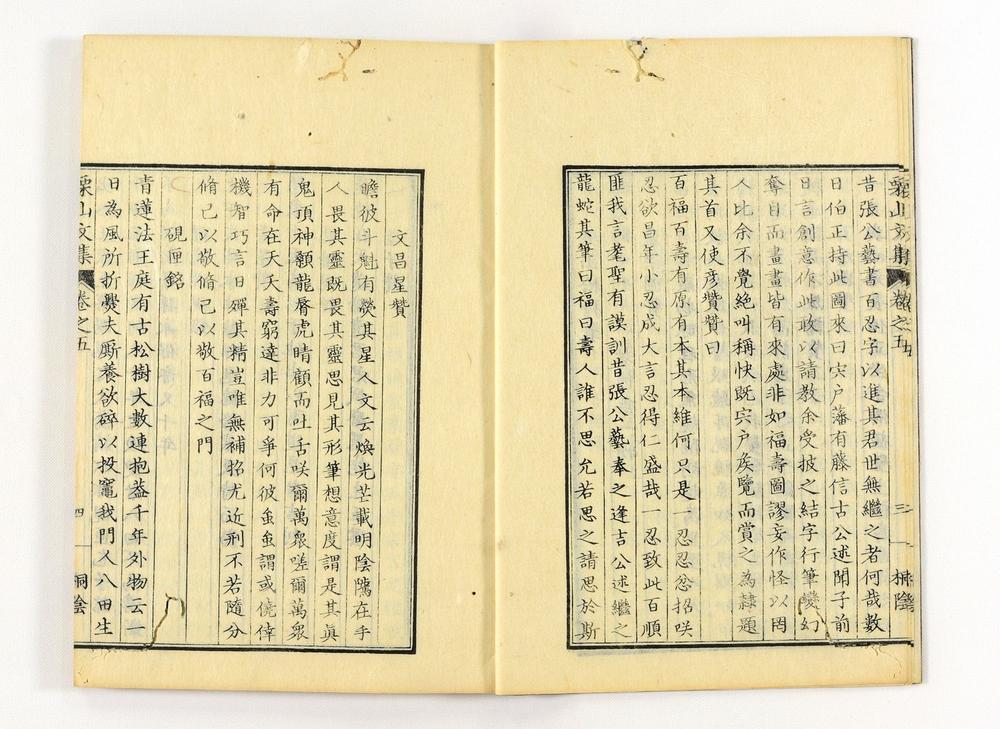 栗山文集 卷之五 三 桐陰
昔張公藝書百忍字以進其君世無繼之者何哉數
日伯正持此圖來曰宍戶藩有藤信古公述聞子前
日言創意作此政以請教余受披之結字行筆變幻
奪目而畫畫皆有來處非如福壽圖謬妄作怪以罔
人比余不覺絶叫稱快既宍戶矦覽而賞之為隷題
其首又使彦贊贊曰
百福百壽有原有本其本維何只是一忍忍忿招咲
忍欲昌年小忍成大言忍得仁盛哉一忍致此百順
匪我言耄聖有謨訓昔張公藝奉之逢吉公述繼之
龍蛇其筆曰福曰壽人誰不思允若思之請思於斯
文昌星贊
瞻彼斗魁有熒其星人文云煥光芒載明陰隲在手
人畏其靈既畏其靈思見其形筆想意度謂是其眞
鬼頂神顙龍脣虎睛顧而吐舌咲爾萬衆嗟爾萬衆
有命在天夭壽窮達非力可爭何彼䖝䖝謂或僥倖
機智巧言日殫其精豈唯無補招尤近刑不若隨分
脩己以敬脩己以敬百福之門
硯匣銘
青蓮法王庭有古松樹大數連抱葢千年外物云一
日為風所折爨夫厮養欲碎以投竈我門人八田生
栗山文集 卷之五 四 桐陰